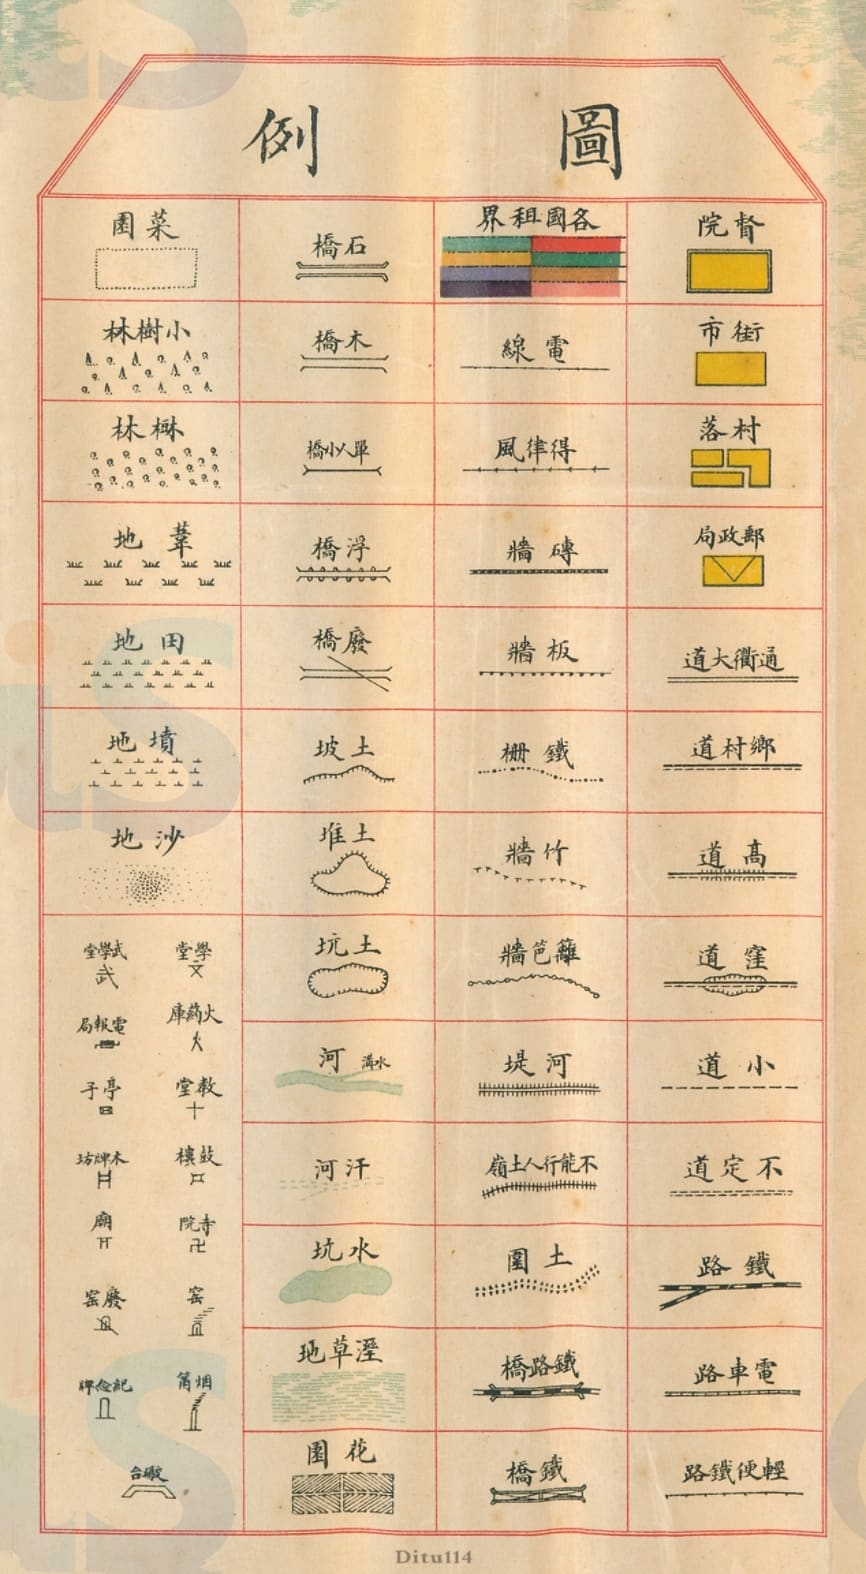 圖例
督院
街市
村落
郵政局
通衢大道
鄉村道
高道
窪道
小道
不定道
鐵路
電車路
輕便鐵路
各國租界
電線
得律風
磚牆
板牆
鐵柵
竹牆
籬笆牆
河堤
不能行人土嶺
土圍
鐵路橋
鐵橋
石橋
木橋
單人小橋
浮橋
廢橋
土坡
土堆
土坑
河 溝水
汗河
水坑
溼草地
花園
菜園
小樹林
林
葦地
田地
墳地
沙地
學堂
文
火藥庫
教堂
鼓樓
寺院
卍
窑
烟筩
武學堂
武
電報局
亭子
木牌坊
廟
廢窑
紀念牌
礮台
Ditu114